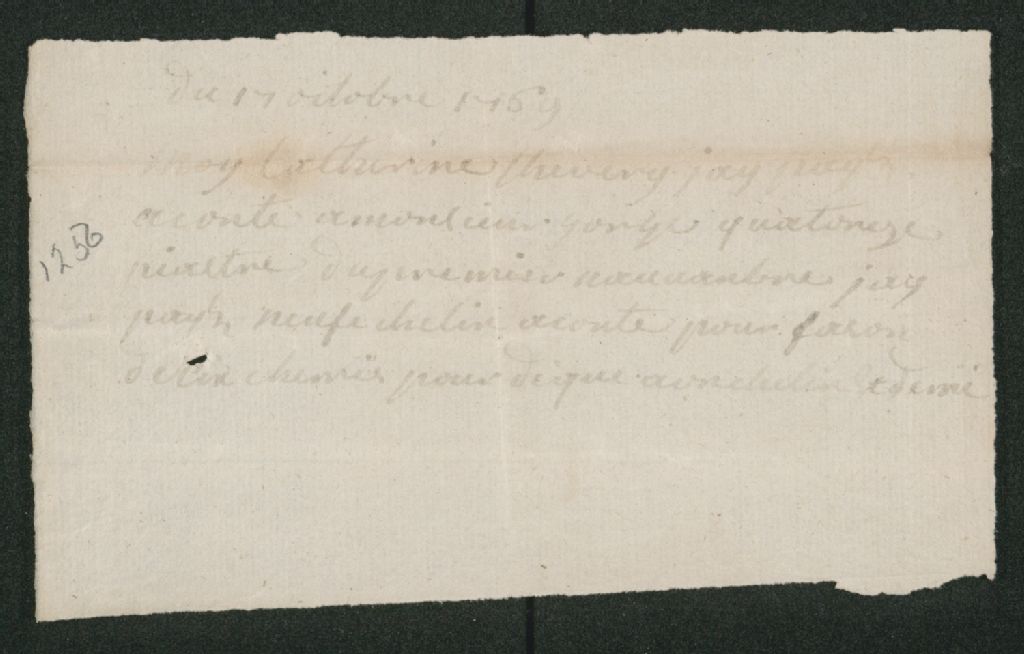 du 17 octobre 1769
moy Catherine thevery jay paye
aconte amonsieur gorge quatorze
piastre du premier nauuanbre jay
paye neufe chelin aconte pour fason
de six chemis pour dique aonchelin edemie
1256